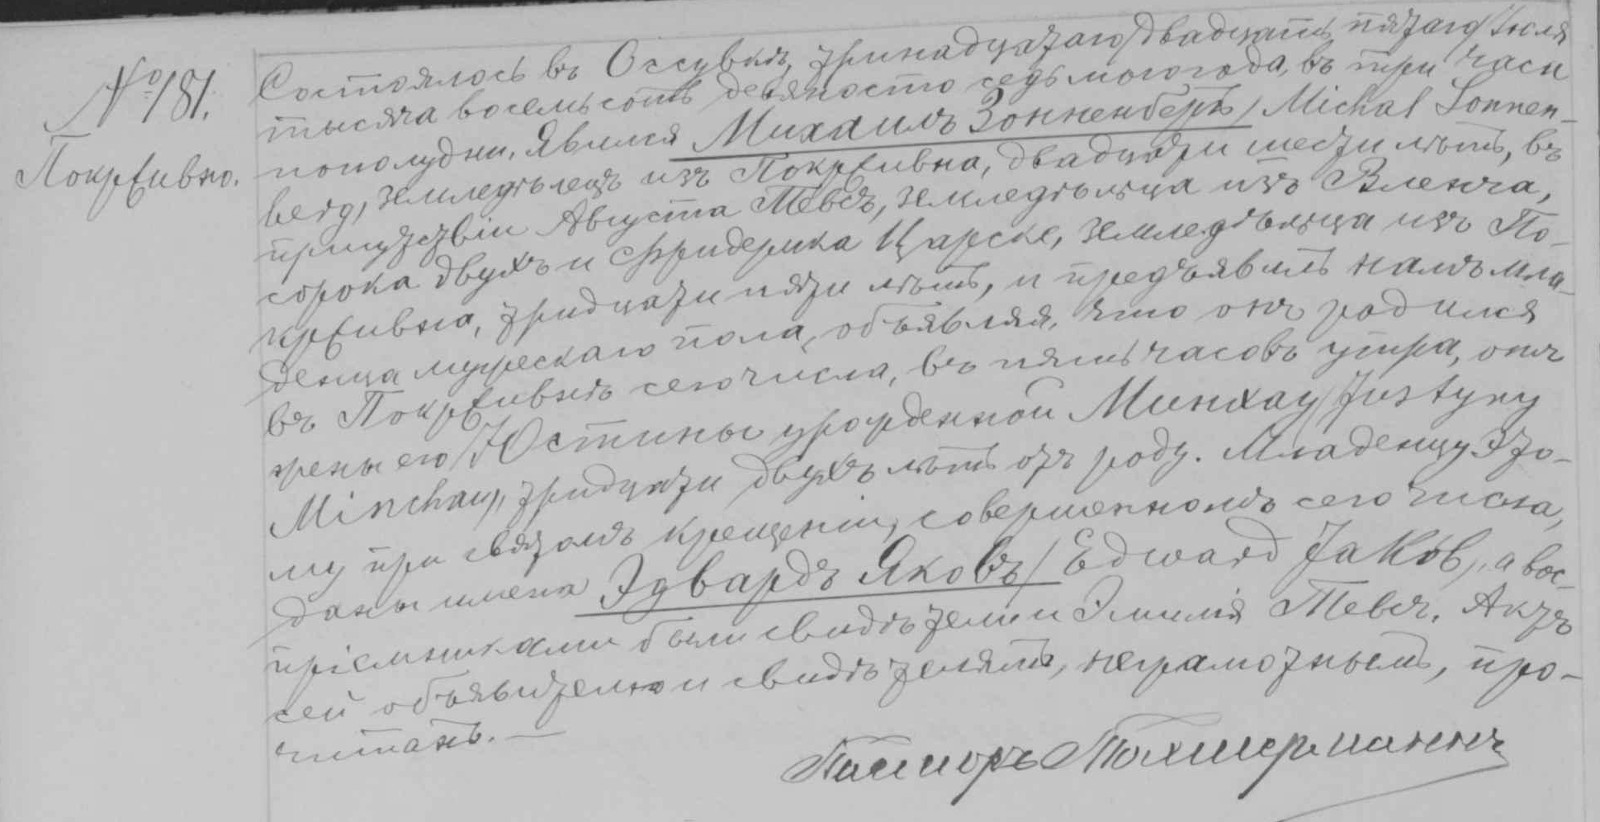 № 181.
Покрживно.
Состоялось въ Оссувкѣ, тринадцатаго/двадцать пятаго/Іюля
тысяча восемьсотъ девяносто седьмого года, въ три часа
пополудни. Явился Михаилъ Зонненбергъ/Michał Sonnen-
berg/, земледѣлецъ изъ Покрживна, двадцати шести лѣтъ, въ
присутствіи Августа Тевсъ, земледѣльца изъ Вленча,
сорока двухъ и Фридерика Царске, земледѣльца изъ По-
крживна, тридцати пяти лѣтъ, и предъявилъ намъ мла-
денца мужескаго пола, объявляя, что онъ родился
въ Покрживнѣ сего числа, въ пять часовъ утра, отъ
жены его Юстины урожденной Минхау/Justyny
Minchau/, тридцати двухъ лѣтъ отъ роду. Младенцу это-
му при святомъ крещеніи, совершенномъ сего числа,
даны имена Эдвардъ Яковъ/Edward Jakób/, а вос-
пріемниками были свидѣтели и Эмилія Тевсъ. Актъ
сей объявителю и свидѣтелямъ, неграмотнымъ, про-
читанъ. —
Пасторъ